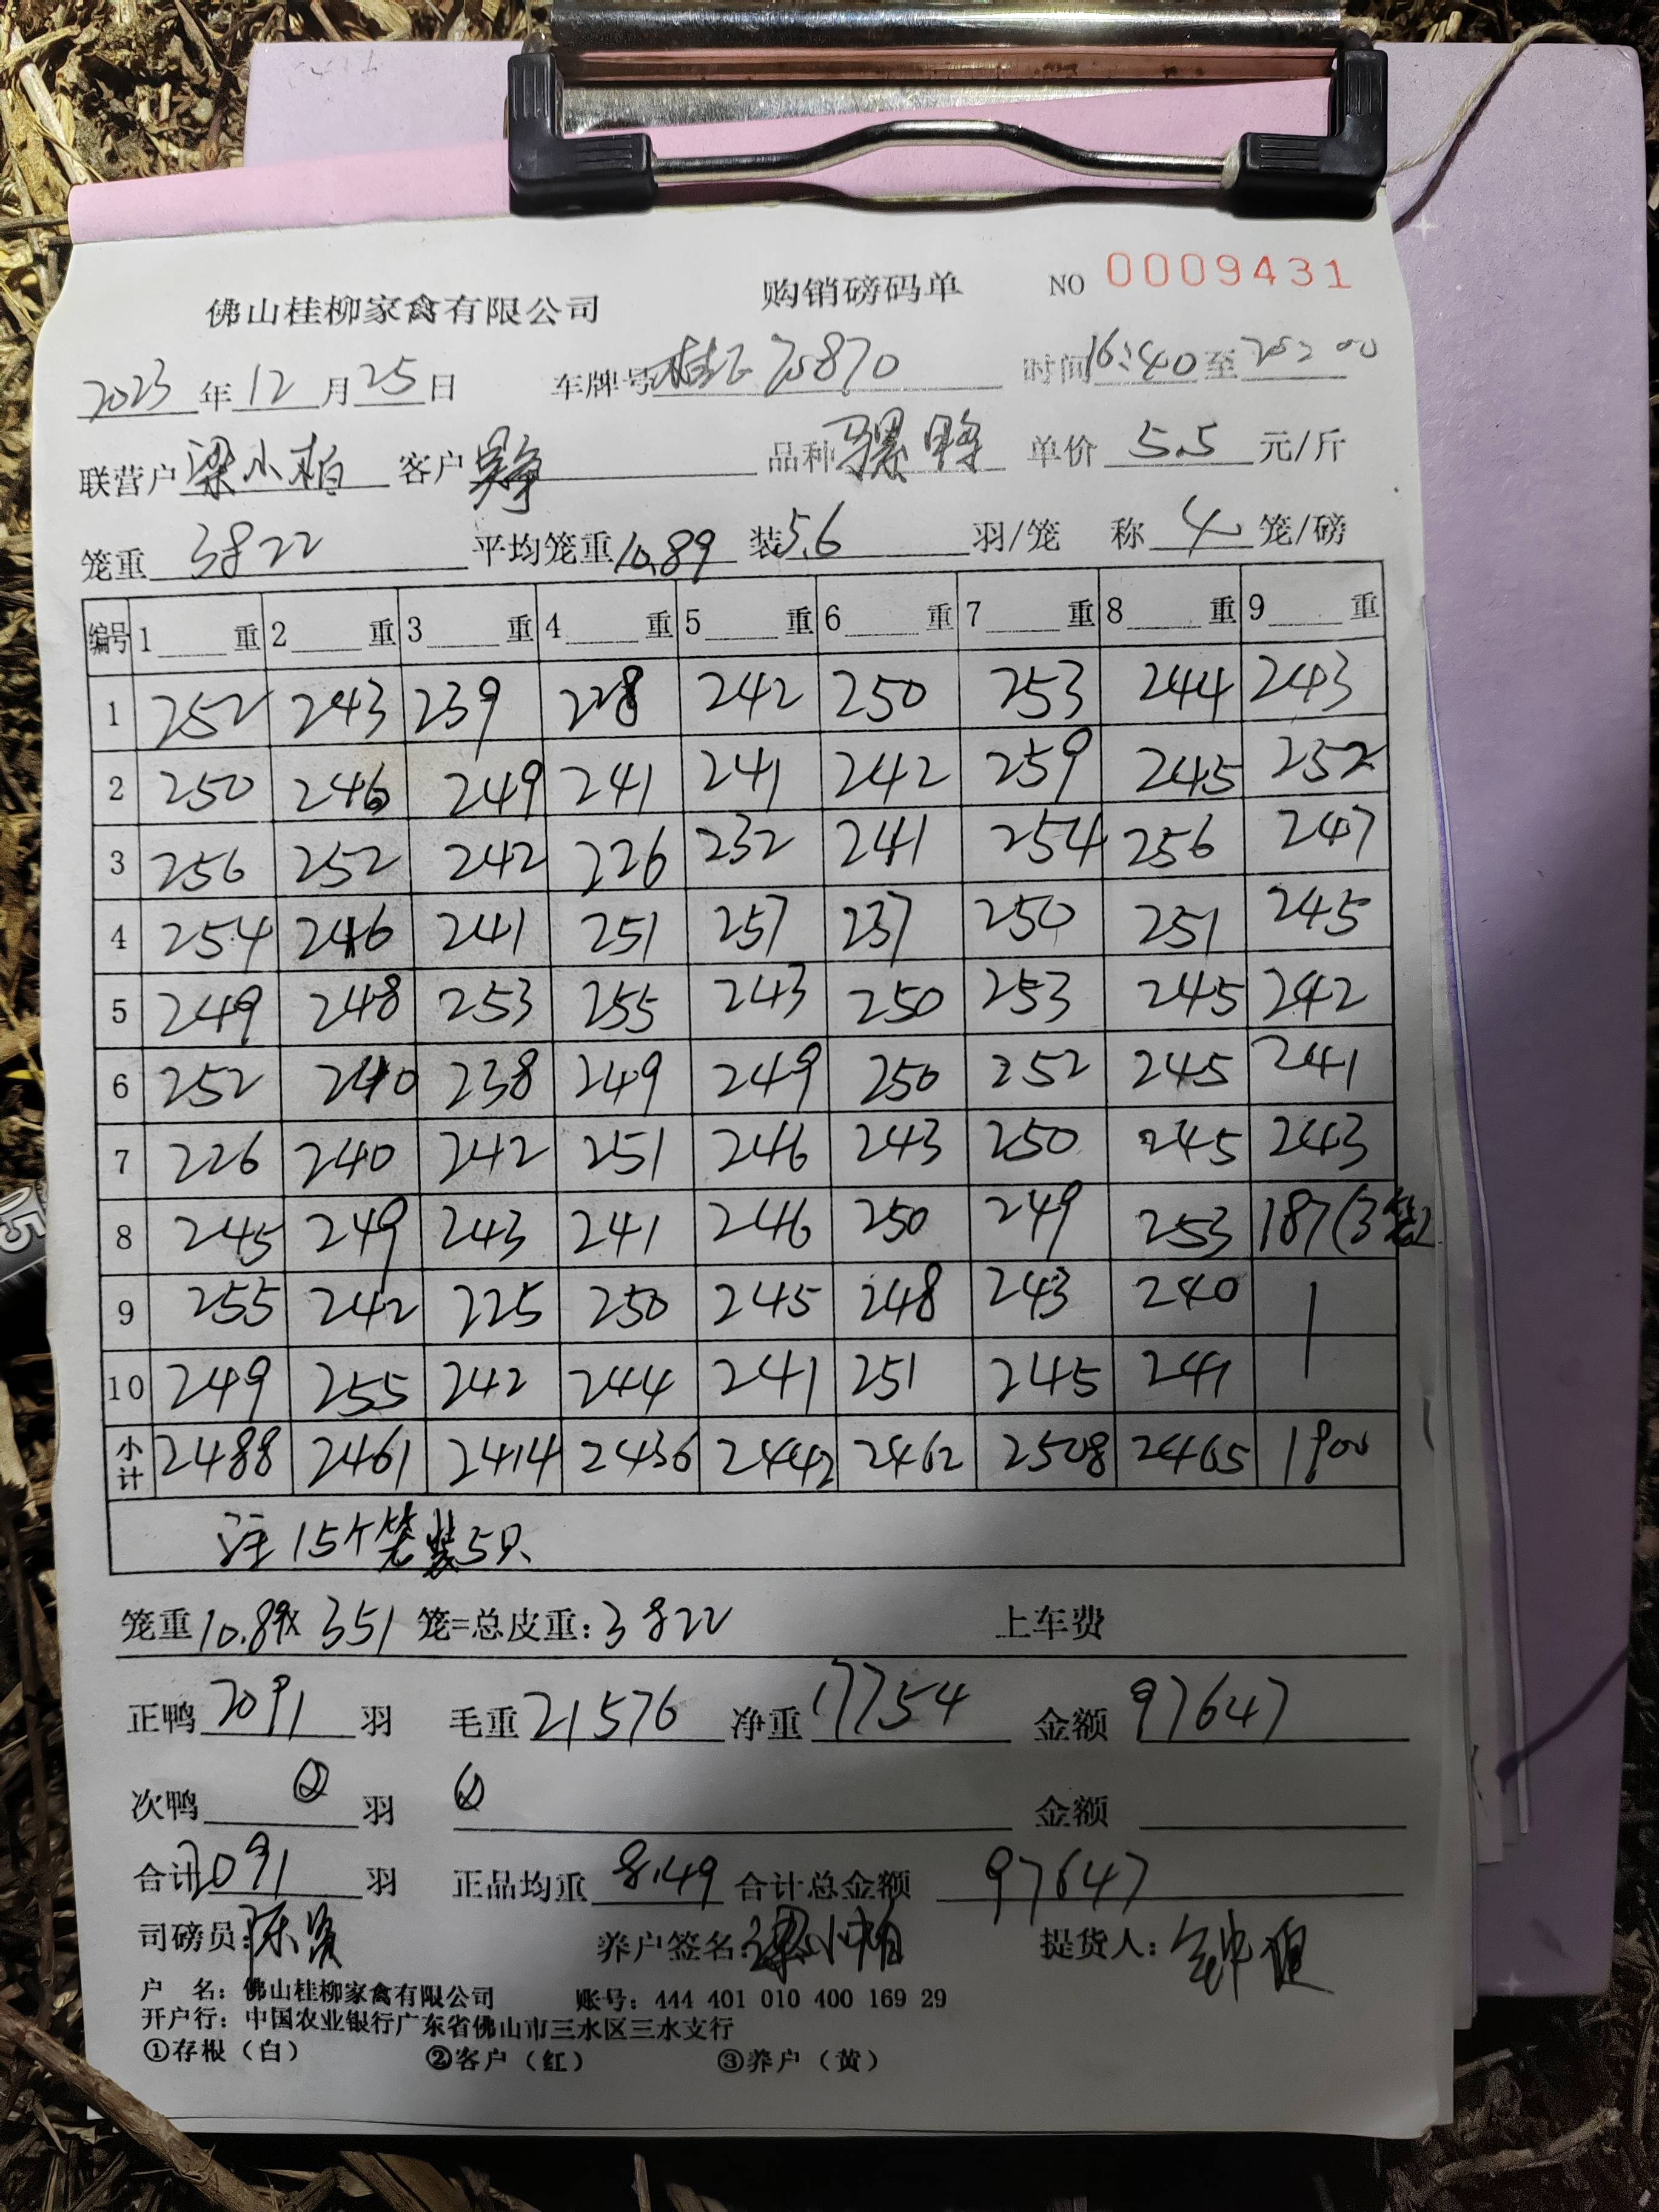 佛山桂柳家禽有限公司 购销磅码单 NO 0009431
2023年12月25日 车牌号 时间16:40至
联营户梁小柏 客户 品种骡鸭 单价5.5元/斤
笼重3822 平均笼重10.89 装5.6羽/笼 称4笼/磅
编号 1重 2重 3重 4重 5重 6重 7重 8重 9重
1 252 243 239 228 242 250 253 244 243
2 250 246 249 241 241 242 259 245 252
3 256 252 242 226 232 241 254 256 247
4 254 246 241 251 257 237 250 251 245
5 249 248 253 255 243 250 253 245 242
6 252 240 238 249 249 250 252 245 241
7 226 240 242 251 246 243 250 245 243
8 245 249 243 241 246 250 249 253 187(3笼)
9 255 242 225 250 245 248 243 240
10 249 255 242 244 241 251 245 241
小计 2488 2461 2414 2436 2442 2462 2508 2465 1900
注15个笼装5只
笼重10.89x351笼=总皮重:3822 上车费
正鸭2091羽 毛重21576 净重17754 金额97647
次鸭0羽 0 金额
合计2091羽 正品均重8.49 合计总金额97647
司磅员: 养户签名:梁小柏 提货人:
户 名:佛山桂柳家禽有限公司 账号:444 401 010 400 169 29
开户行:中国农业银行广东省佛山市三水区三水支行
①存根(白) ②客户(红) ③养户(黄)
05